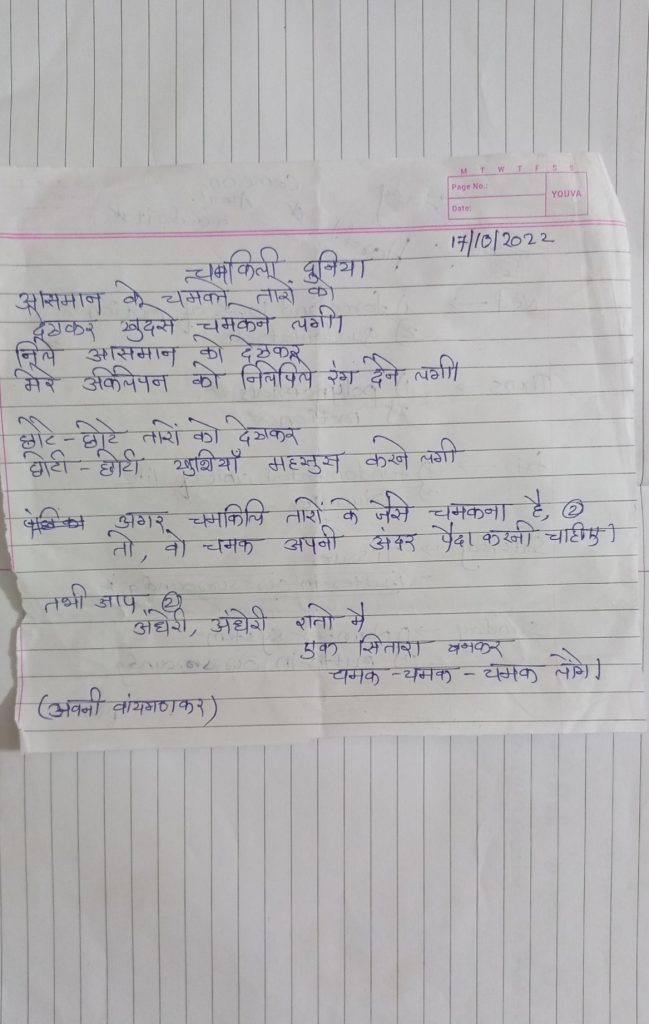 M T W T F S S
Page No.:
YOUVA
Date:
17/10/2022
चमकिली दुनिया
आसमान के चमकते तारों को
देखकर खुदसे चमकने लगी।
निले आसमान को देखकर
मेरे अकेलेपन को निलेपिले रंग देने लगी।
छोटे - छोटे तारों को देखकर
छोटी - छोटी खुशियाँ महसुस करने लगी
अगर चमकिले तारों के जैसे चमकना है, ②
तो, वो चमक अपनी अंदर पैदा करनी चाहीए।
तभी आप ②
अंधेरी, अंधेरी रातो मै
एक सितारा बनकर
चमक - चमक - चमक लोंगे।
(अवनी